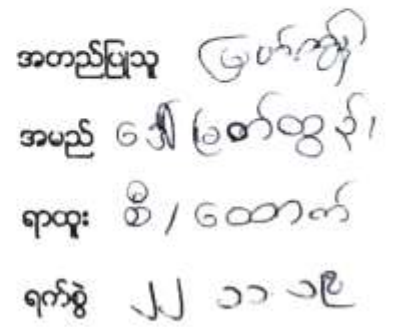 အတည်ပြုသူ
အမည် ဒေါ်မြတ်ထွန်း
ရာထူး စီ / ထောက်
ရက်စွဲ ၂၂ ၁၁ ၁၉